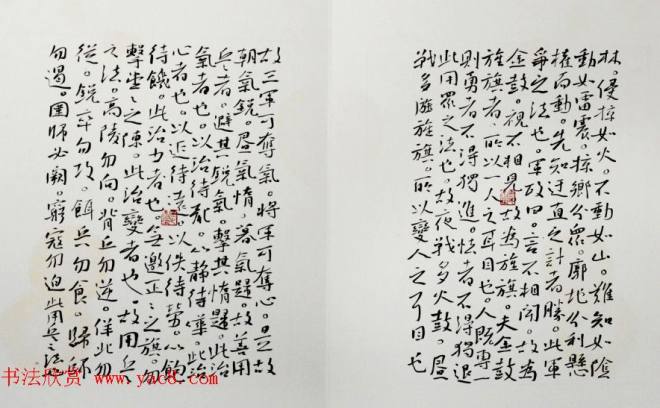 林。侵掠如火。不動如山。難知如陰
動如雷震。掠鄉分眾。廓地分利懸
權而動。先知迂直之計者勝。此軍
爭之法也。軍政曰。言不相聞。故為
金鼓。視不相見。故為旌旗。夫金鼓
旌旗者。所以一人之耳目也。人既專一
則勇者不得獨進。怯者不得獨退
此用眾之法也。故夜戰多火鼓。晝
戰多旌旗。所以變人之耳目也
故三軍可奪氣。將軍可奪心。是故
朝氣銳。晝氣惰。暮氣歸。故善用
兵者。避其銳氣。擊其惰歸。此治
氣者也。以治待亂。以靜待嘩。此治
心者也。以近待遠。以佚待勞。以飽
待餓。此治力者也。無邀正々之旗。勿
擊堂々之陳。此治變者也。故用兵
之法。高陵勿向。背丘勿逆。佯北勿
從。銳卒勿攻。餌兵勿食。歸師
勿遏。圍師必闕。窮寇勿迫此用兵之法也
书法欣赏 www.yac8.com